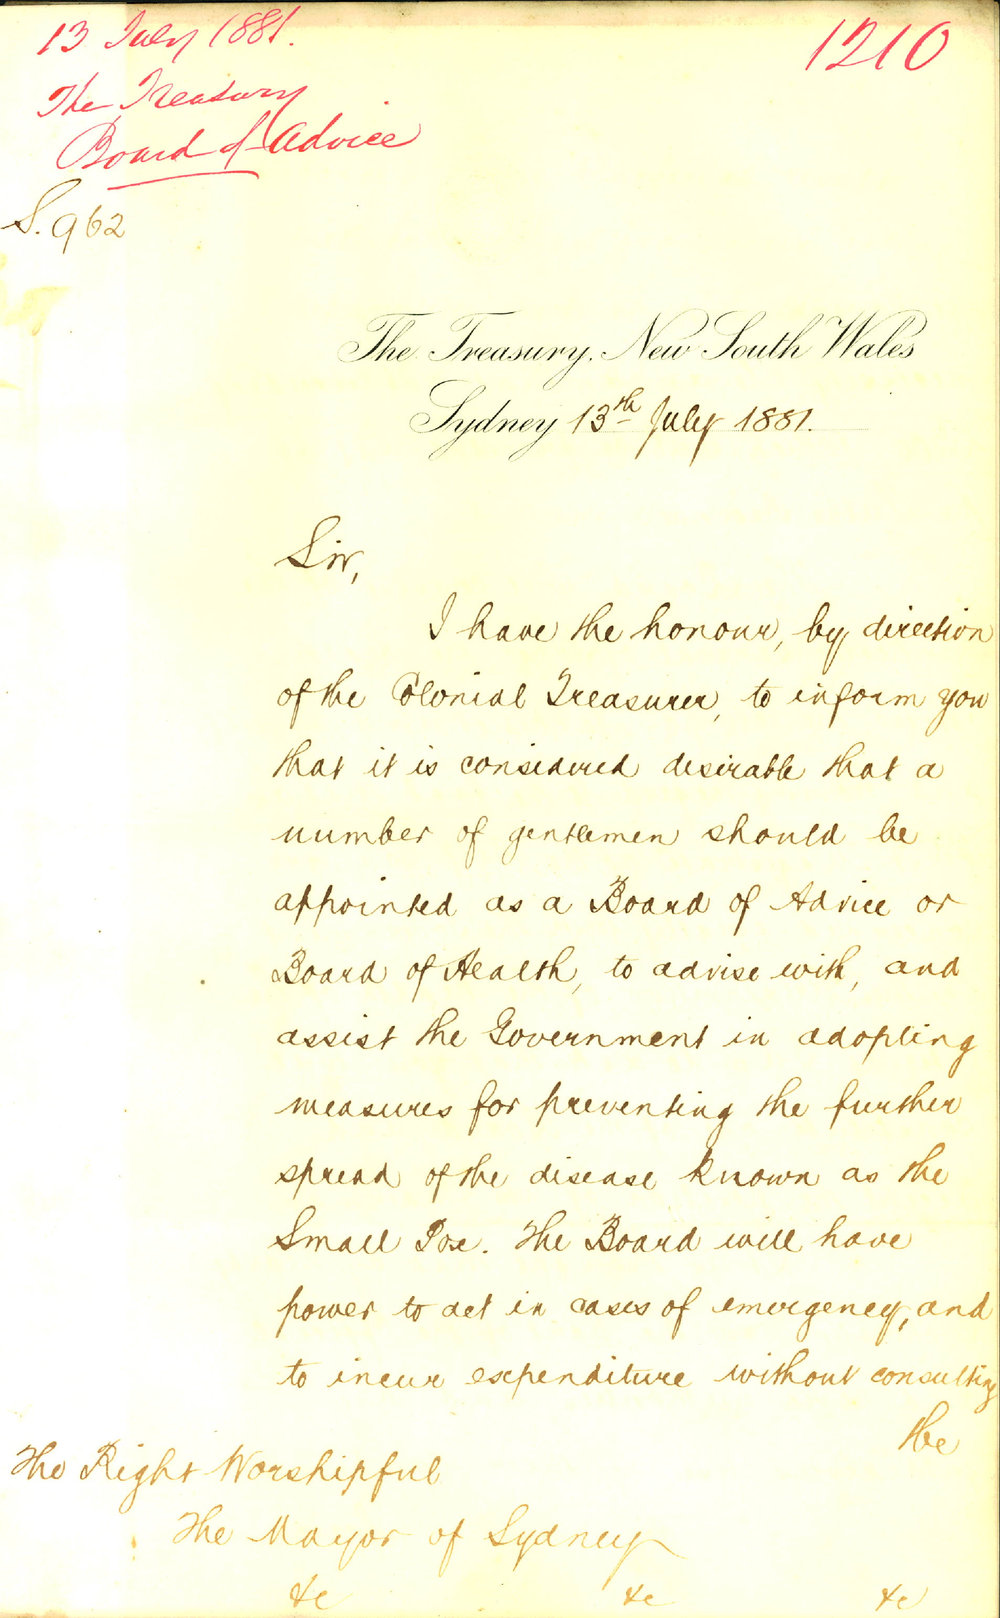 13 July 1881.
1210
The Treasury
Board of Advice
S. 962
The Treasury, New South Wales
Sydney 13th July 1881.
Sir,
I have the honour, by direction
of the Colonial Treasurer, to inform you
that it is considered desirable that a
number of gentlemen should be
appointed as a Board of Advice or
Board of Health, to advise with, and
assist the Government in adopting
measures for preventing the further
spread of the disease known as the
Small Pox. The Board will have
power to act in cases of emergency, and
to incur expenditure without consulting
the
The Right Worshipful
The Mayor of Sydney
&c &c &c